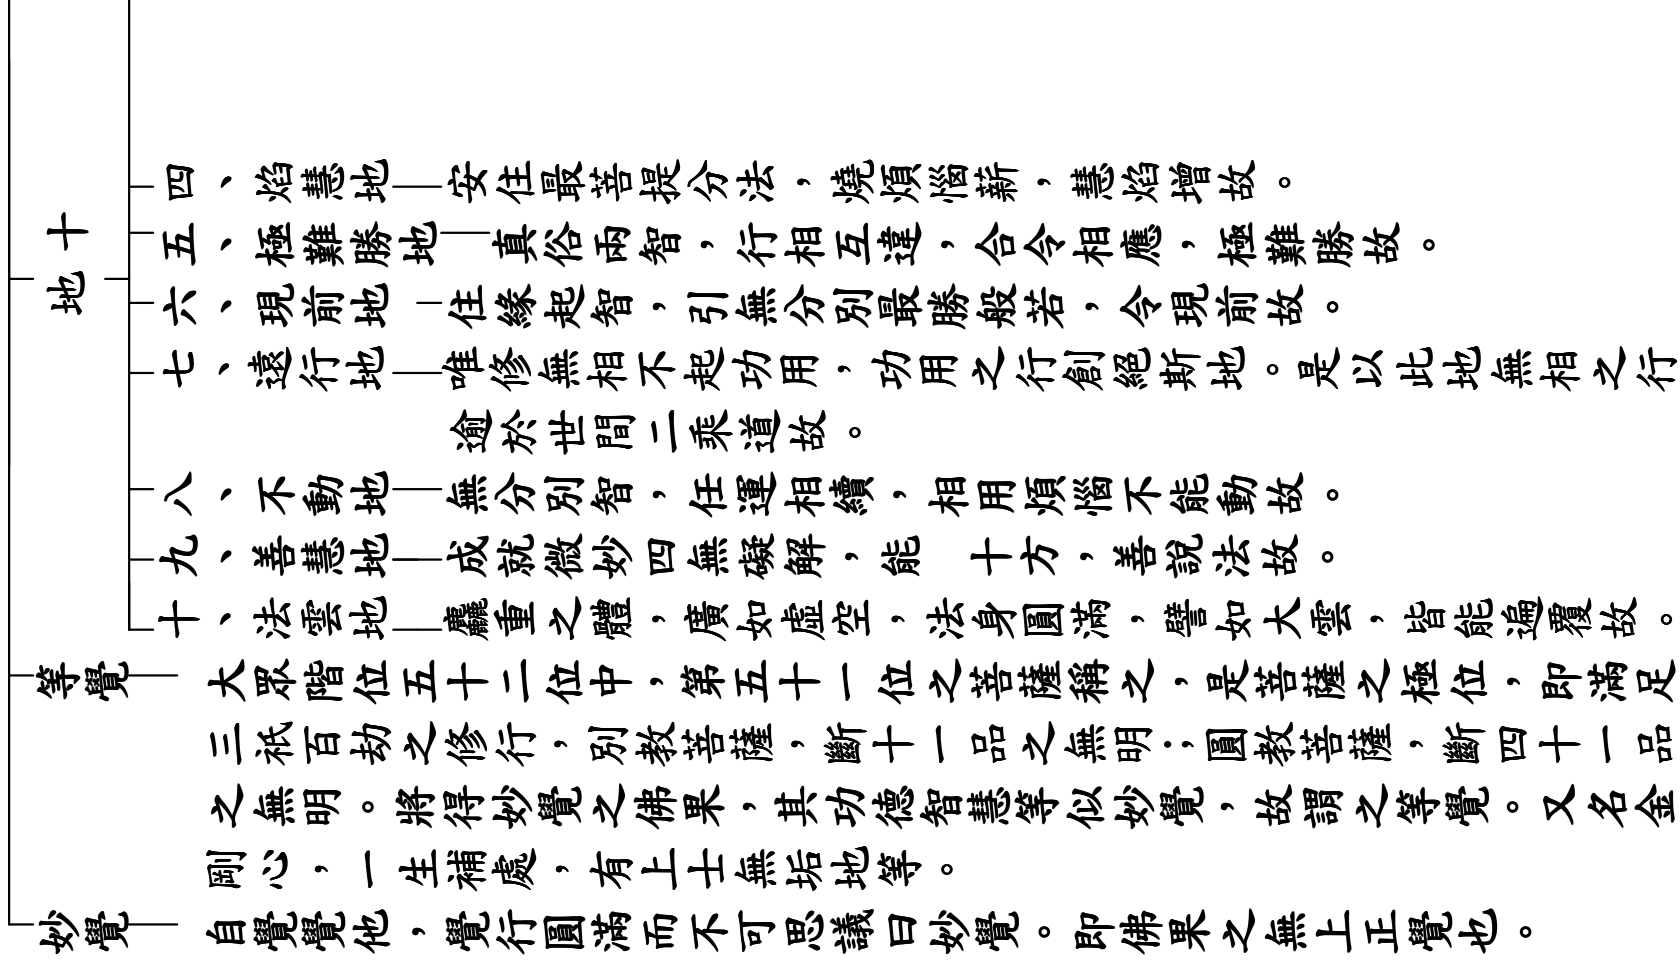 十地
四、焰慧地——安住最菩提分法，燒煩惱薪，慧焰增故。
五、極難勝地——真俗兩智，行相互違，合令相應，極難勝故。
六、現前地—住緣起智，引無分別最勝般若，令現前故。
七、遠行地——唯修無相不起功用，功用之行創絕斯地。是以此地無相之行
逾於世間二乘道故。
八、不動地——無分別智，任運相續，相用煩惱不能動故。
九、善慧地——成就微妙四無礙解，能　十方，善說法故。
十、法雲地——麤重之體，廣如虛空，法身圓滿，譬如大雲，皆能遍覆故。
等覺——大眾階位五十二位中，第五十一位之菩薩稱之，是菩薩之極位，即滿足
三祇百劫之修行，別教菩薩，斷十一品之無明；圓教菩薩，斷四十一品
之無明。將得妙覺之佛果，其功德智慧等似妙覺，故謂之等覺。又名金
剛心，一生補處，有上士無垢地等。
妙覺——自覺覺他，覺行圓滿而不可思議曰妙覺。即佛果之無上正覺也。